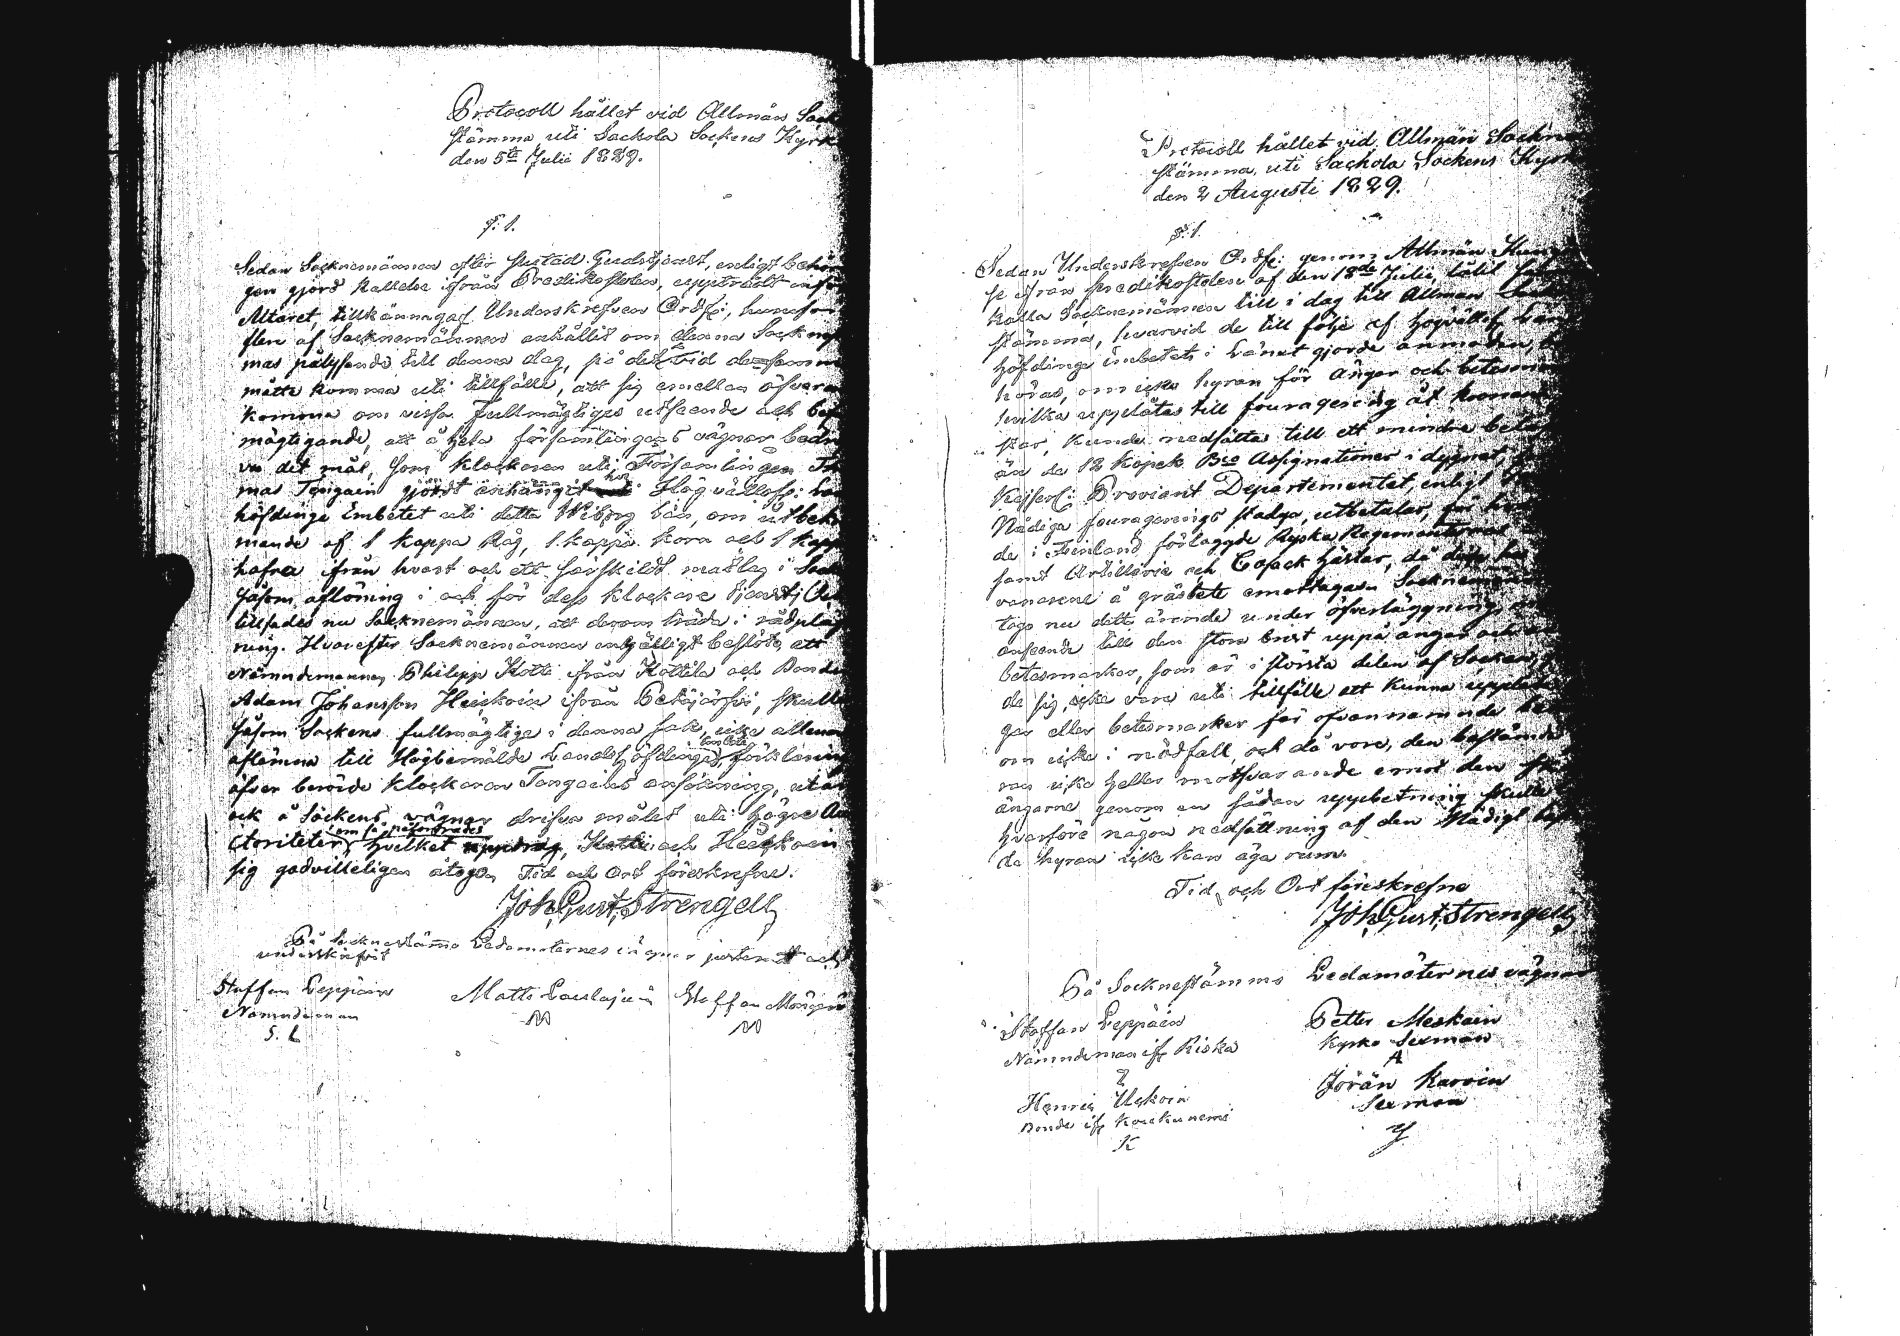 Protocoll hållet vid Allmän Sock
stämma uti Sackola Sockens Kyrk
den 5te Julii 1829.
§. 1.
Sedan Socknemännen efter slutad Gudstjenst, enligt behör
gen gjord kallelse ifrån Predikostolen, uppträdt inför
Altaret, tillkännagaf Underskrefven Ordf:, hurusom
flere af Socknemännen anhållit om denna Sockne
mas pålysande till denna dag, på det vid densamma
måtte komma uti tillfälle, att sig emellan öfverens
komma om vissa fullmägtiges utseende och bef
mägtigande, att å hela församlingens vägnar bedri
va det mål, som klockaren uti Församlingen Tho
mas Tengain gjordt anhängit hos Högvällofl: Lands
höfdinge Embetet uti detta Wiborg Län, om utbekom
mande af 1 kappa Råg, 1. kappa korn och 1 kappa
hafra ifrån hvart och ett särskildt matlag i Sock
såsom aflöning i och för dess klockare tjenst; Och
tillsades nu Socknemännen, att derom träda i rådpläg
ning. Hvarefter Socknemännen enhälligt beslöto, att
Nämndemannen Philipp Kotti från Kottila och Bonden
Adam Johansson Heiskain ifrån Petäjärfvi, skulle
såsom Sockens fullmägtige i denna sak, icke allenast
aflämna till Högbemälde Landshöfdinge Embete förklaring
öfver berörde klockaren Tengains ansökning, utan
ock å Sockens vägnar drifva målet uti högre Au
ctoriteter, om så påfordrades hvilket uppdrag, Kotti och Heiskain
sig godvilleligen åtogo. Tid och Ort föreskrefne.
Joh. Gust. Strengell
På Socknestämmo Ledamöternes vägnar justerat och
underskrifvit
Staffan Leppäin
Nämndeman
S. L
Matts Loulajain
M
Staffan Möng
M
Protocoll hållet vid Allmän Sockne
stämma, uti Sackola Sockens Kyrk
den 2 Augusti 1829.
§. 1.
Sedan Underskrefven Ordf: genom Allmän Kung
se från predikostolen af den 18de Julii, låtit sam
kalla Socknemännen till i dag till Allmän Sockne
stämma, hvarvid de till följe af Högvällofl. Lands
höfdinge Embetets i Länet gjorde anmodan,
höras, om icke hyran för ängar och betesmar
hvilka upplåtas till fouragering åt kronans
star, kunde nedsättas till ett mindre belopp
än de 12 kopek Bco Assignationer i dygnet
Kejserl: Proviant Departementet, enligt
Nådiga fouragerings stadga, utbetalar, för
de i Finland förlaggde Ryska Regementernas
samt Artillerie och Cosack hästar, då desse
vanarne å gräsbete emottagas. Socknemännen
togo nu detta ärende under öfverläggning,
anseende till den stora brist uppå ängar och
betesmarker, som är i största delen af Socken,
de sig, icke vara uti tillfälle att kunna upplåta
gar eller betesmarker för ofvannämnde
om icke i nödfall, och då vore, den bestämde
ran icke heller motsvarande emot den ska
ängarne genom en sådan uppbetning skulle
hvarföre någon nedsättning af den Nådigt best
da hyran icke kan äga rum.
Tid och Ort föreskrefne
Joh. Gust. Strengell
På Sockne Stämmo Ledamöternes vägnar
Staffan Leppäin
Nämndeman ifr Riska
Petter Meskain
Kyrko Sexman
A
Henric Uskoin
Bonde ifr Koukunemi
K
Jöran Karvin
Sexman